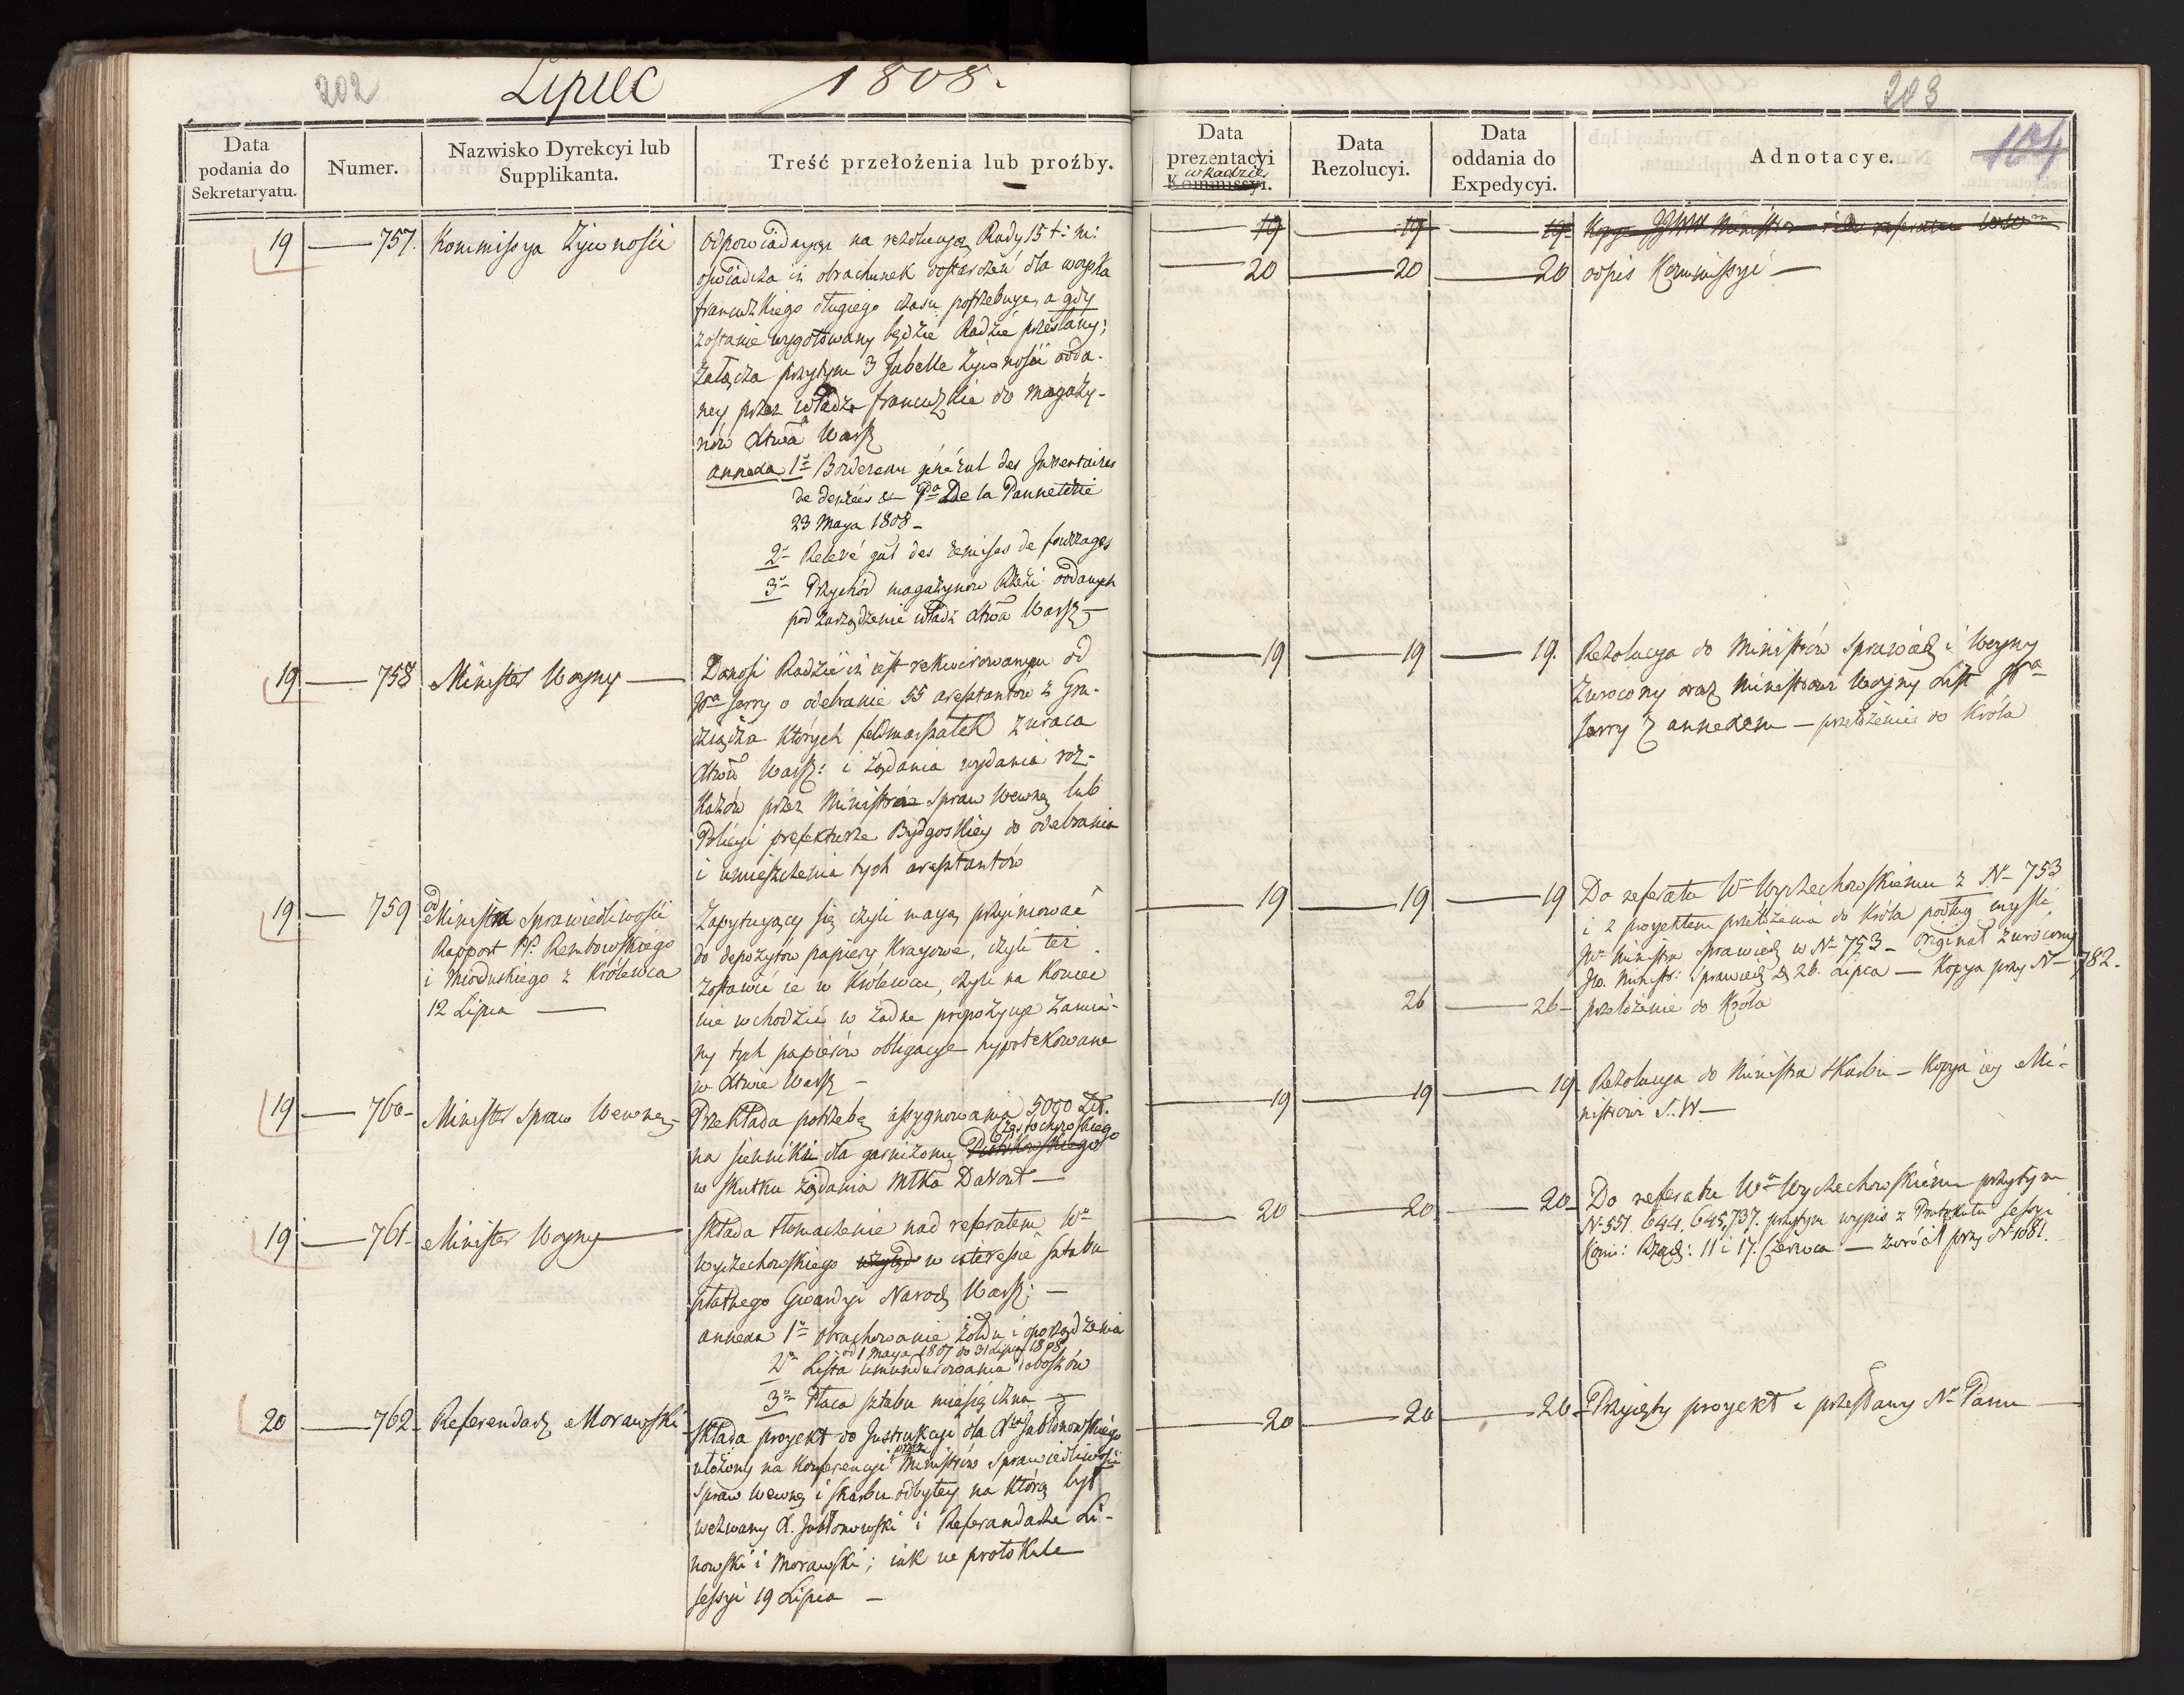 202
Lipiec 1808.
203
104
Data podania do Sekretaryatu.
Numer.
Nazwisko Dyrekcyi lub Supplikanta.
Treść przełożenia lub proźby.
Data prezentacyi w Radzie Kommissyi.
Data Rezolucyi.
Data oddania do Expedycyi.
Adnotacye.
19 — 757. Kommissya Żywności
odpowiadaiąc na rezolucyą Rady 15 t: m:
oświadcza iż obrachunek dostarczeń dla woyska
francuzkiego długiego czasu potrzebuye, a gdy
zostanie wygotowany będzie Radzie przesłany;
załącza przytym 3 Tabelle Żywności odda-
ney przez władze francuzkie do magazy-
nów Xtwa Warsz
annexa 1º Bordereau général des Inventaires
de denrées
de la Pannetrie
23 Maya 1808 –
2º Relevé gńl des remises de fourrages
3º Przychód magazynów Rzeźi oddanych
pod zarządzenie władz Xtwa Warsz –
19 19 19 Kopia JJWW Ministr
20 — 20 — 20 odpis Kommissyi —
19 — 758 Minister Woyny —
Donosi Radzie iż iest rekwirowanym od
Jrła Jarry o odebranie 55 aresztantów z Gru-
dziądza których feldmarszałek zwraca
Xtwu Warsz: i żądania wydania roz-
kazów przez Ministra Spraw Wewnę lub
Policyi prefekturze Bydgoskiey do odebrania
i umieszczenia tych aresztantów
19 — 19 — 19. Rezolucya do Ministrów Sprawied i Woyny
zwrocony oraz Ministrowi Woyny List
Jarry z annexem — przełożenie do Króla
19 — 759 od Ministra Sprawiedliwości
Rapport PP. Rembowskiego
i Mioduskiego z Królewca
12 Lipca —
Zapytuiący się czyli maią przyimować
do depozytów papiery kraiowe, czyli też
zostawić ie w Królewcu, czyli na koniec
nie wchodzić w żadne propozycye zamia-
ny tych papierów obligacye hypotekowane
w Xtwie Warsz —
19 — 19 — 19 Do referatu Wº Wyczechowskiemu z N– 753
i z proyektem przełożenia do Króla podług myśli
JW Ministra sprawied w Nº 753 – Originał zwrócony
Jw. Ministr: Sprawied d 26. Lipca — Kopya przy N– 782.
26 — 26 – przełożenie do Króla
19 — 760 – Minister Spraw Wewnę –
Przekłada potrzebę assygnowania 5000 Zł.
na sienniki dla garnizonu Piotrkowskiego Częstochowskiego
w skutku żądania Młka Davout —
19 — 19 — 19 Rezolucya do Ministra Skarbu – Kopya iey Mi-
nistrowi S. W —
19 — 761 – Minister Woyny —
Składa tłomaczenie nad referatem Wº
Wyczechowskiego w interesie sztabu
płatnego Gwardyi Narod Warsz: —
annexa 1º obrachowanie żołdu i oporządzenia
od 1 Maya 1807 do 31 Lipca 1808
2º Lista umundurowania doboszów
3º Płaca sztabu miesięczna —
20 — 20 — 20 – Do referatu Wº Wyczechowskiemu przytym
N– 551. 644, 645, 737. przytym wypis z Protokułu Sessyi
Komi: Rząd: 11 i 17. Czerwca — zwrócił przy N– 1081.
20 — 762 – Referendarz Morawski
składa proyekt do Instrukcyi dla Xcia Jabłonowskiego
ułożony na konferencyi przez Ministrów Sprawiedliwości
Spraw Wewnę i Skarbu odbytey na którą był
wezwany X. Jabłonowski i Referendarze Li-
nowski i Morawski; iak w protokule
sessyi 19 Lipca —
20 — 20 — 20 – Przyięty proyekt i przesłany N– Panu —